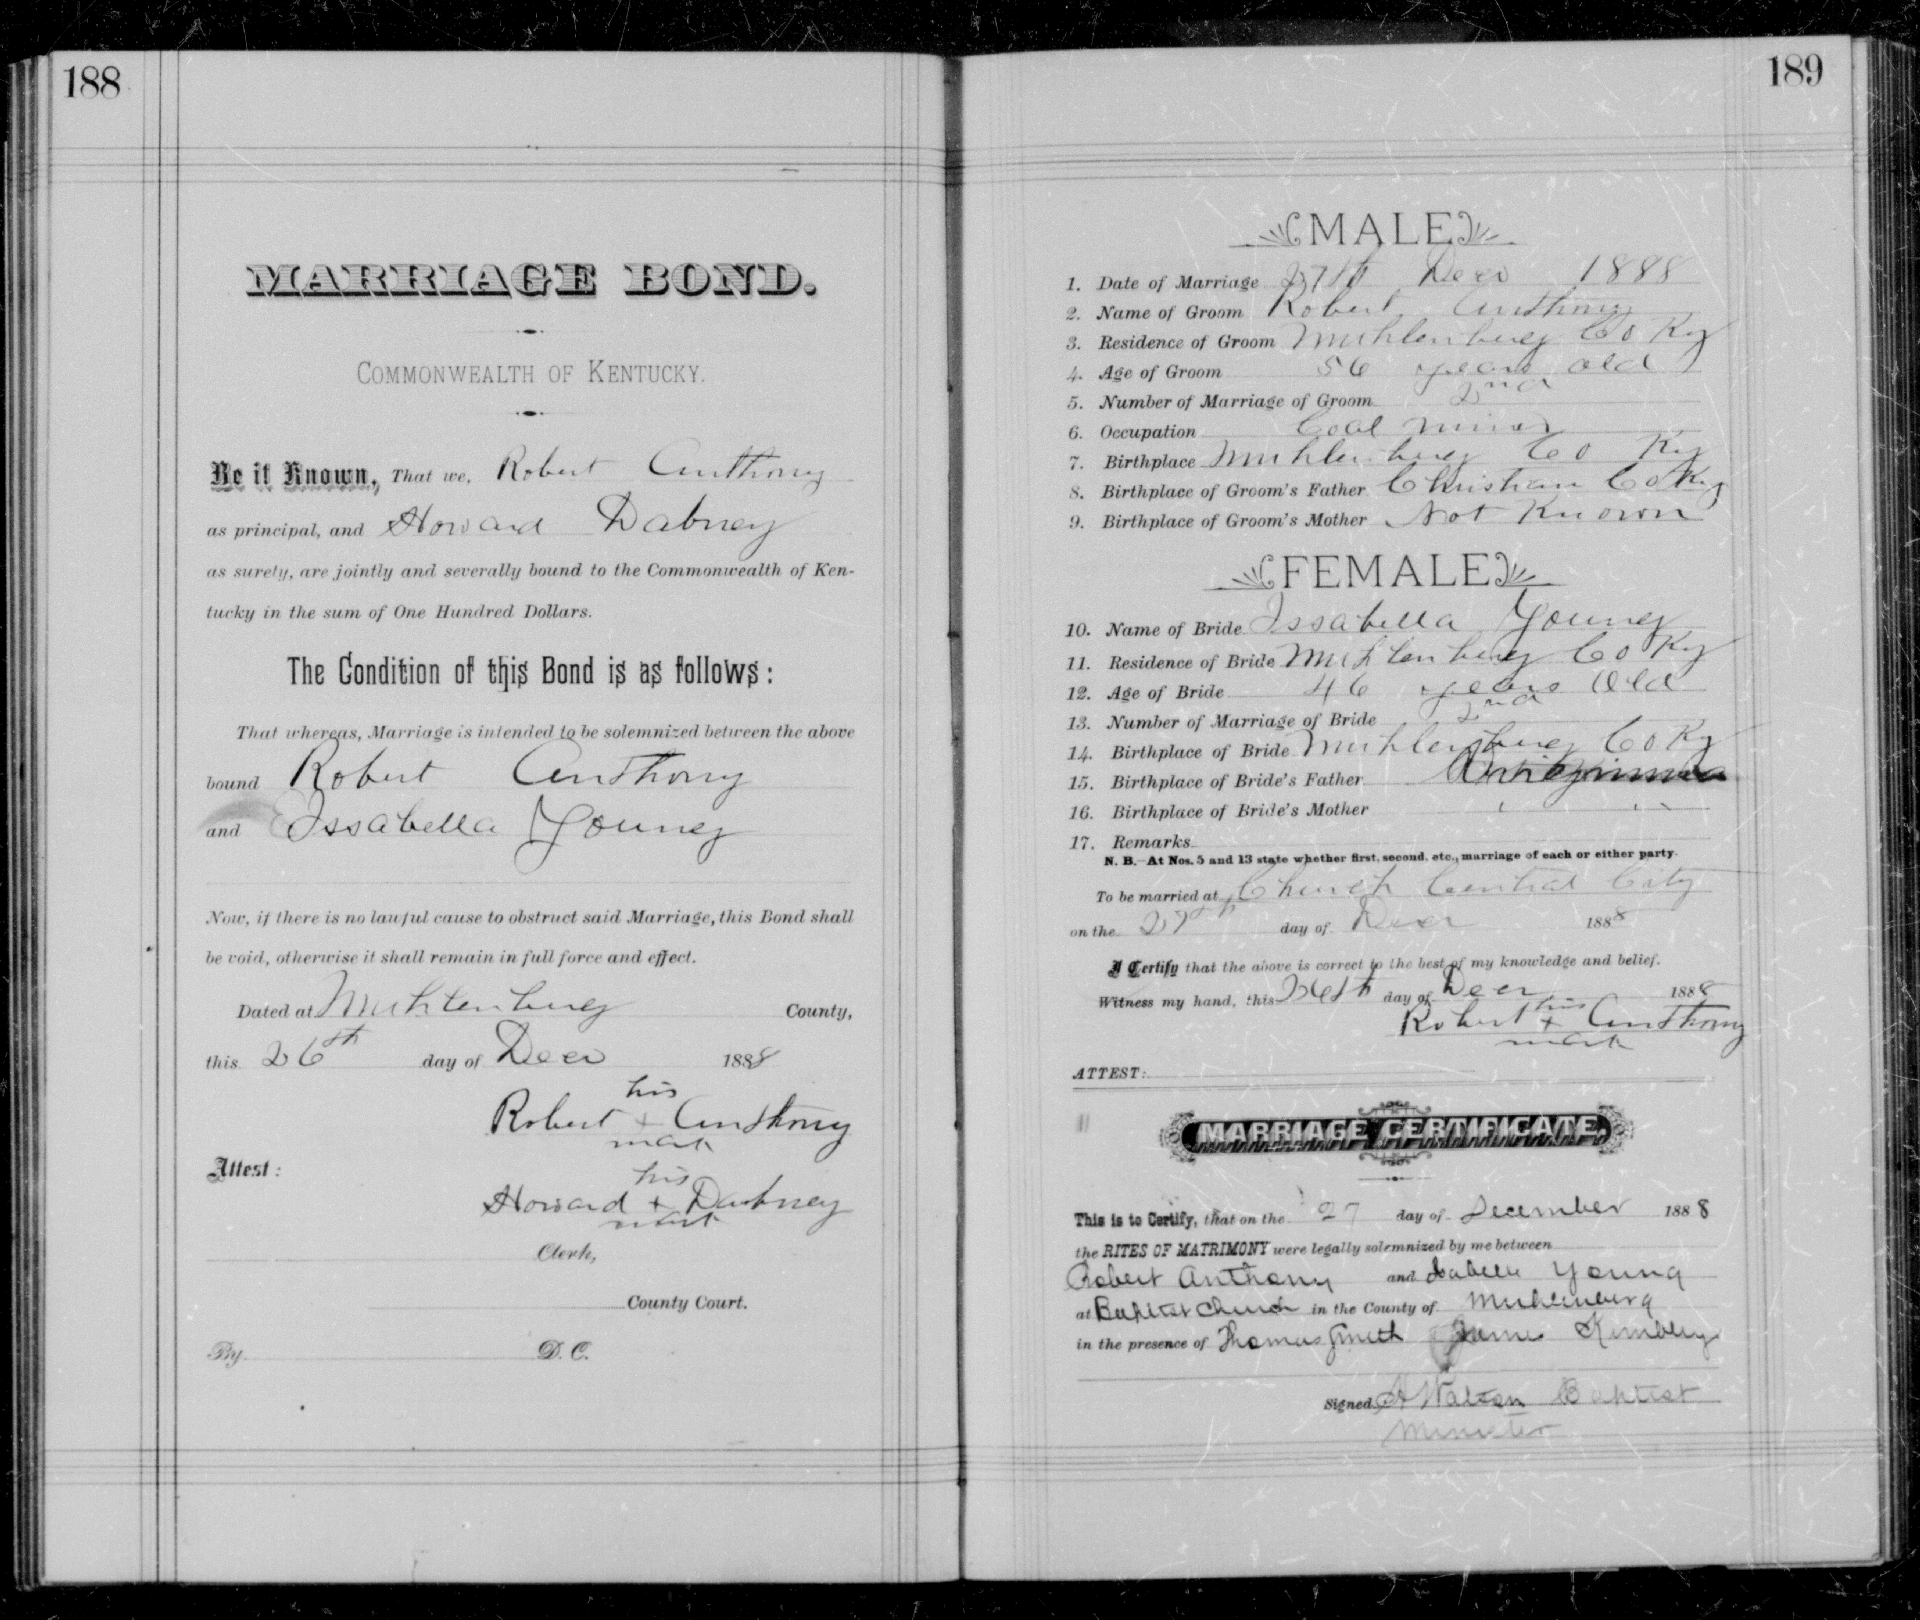 188
MARRIAGE BOND.
COMMONWEALTH OF KENTUCKY.
Be it Known, That we, Robert Anthony
as principal, and Howard Dabney
as surety, are jointly and severally bound to the Commonwealth of Ken-
tucky in the sum of One Hundred Dollars.
The Condition of this Bond is as follows:
That whereas, Marriage is intended to be solemnized between the above
bound Robert Anthony
and Issabella Young
Now, if there is no lawful cause to obstruct said Marriage, this Bond shall
be void, otherwise it shall remain in full force and effect.
Dated at Muhlenburg County,
this 26th day of Decr 1888
his
Robert + Anthony
mark
Attest:
his
Howard + Dabney
mark
Clerk,
County Court.
By D. C.
189
MALE
1. Date of Marriage 27th Decr 1888
2. Name of Groom Robert Anthony
3. Residence of Groom Muhlenburg Co Ky
4. Age of Groom 56 years old
5. Number of Marriage of Groom 2nd
6. Occupation Coal miner
7. Birthplace Muhlenburg Co Ky
8. Birthplace of Groom's Father Christian Co Ky
9. Birthplace of Groom's Mother Not Known
FEMALE
10. Name of Bride Issabella Young
11. Residence of Bride Muhlenburg Co Ky
12. Age of Bride 46 years Old
13. Number of Marriage of Bride 2nd
14. Birthplace of Bride Muhlenburg Co Ky
15. Birthplace of Bride's Father
16. Birthplace of Bride's Mother " "
17. Remarks
N. B.—At Nos. 5 and 13 state whether first, second, etc., marriage of each or either party.
To be married at Church Central City
on the 27th day of Decr 1888
I Certify that the above is correct to the best of my knowledge and belief.
Witness my hand, this 26th day of Decr 1888
his
Robert + Anthony
mark
ATTEST:
MARRIAGE CERTIFICATE.
This is to Certify, that on the 27 day of December 1888
the RITES OF MATRIMONY were legally solemnized by me between
Robert Anthony and Isabelle Young
at Baptist Church in the County of Muhlenberg
in the presence of Thomas Smith James Kimbley
Signed Watson Baptist
Minister